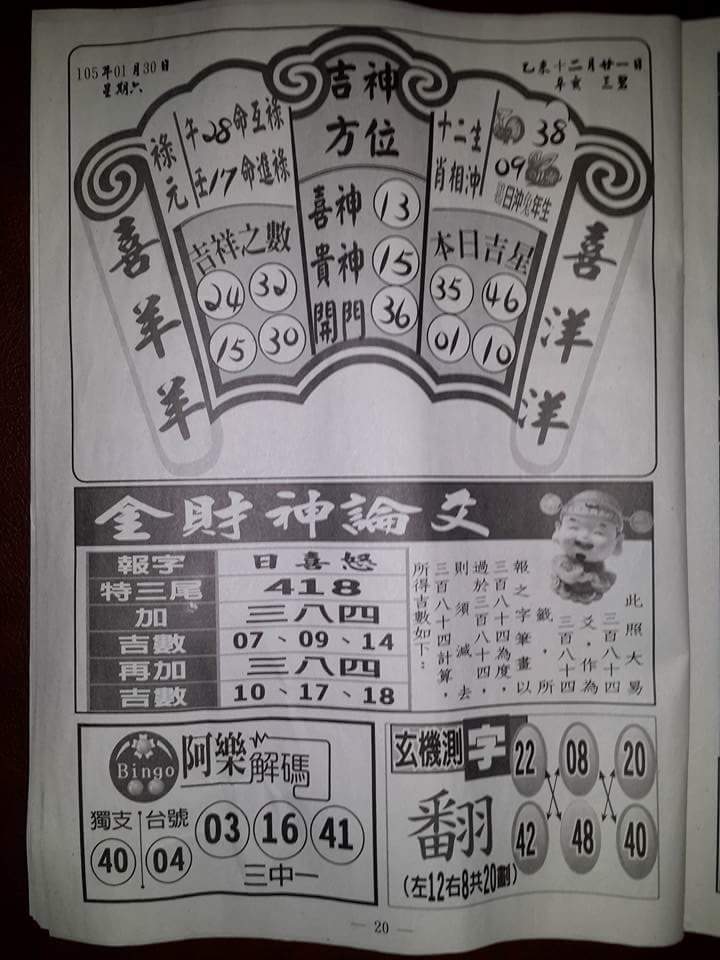 105年01月30日
星期六
乙未十二月廿一日
辛亥
吉神
方位
喜神 13
貴神 15
開門 36
祿元
午28命互祿
壬17命進祿
吉祥之數
24 32
15 30
十二生
肖相沖
38
09
日沖兔年生
本日吉星
35 46
01 10
喜羊羊
喜洋洋
金財神論爻
報字 日喜怒
特三尾 418
加 三八四
吉數 07、09、14
再加 三八四
吉數 10、17、18
此照大易
三百八十四
爻，作為
三百八十四
籤，所
報之字筆畫以
三百八十四為度，
過於三百八十四，
則須減去
三百八十四計算，
所得吉數如下：
Bingo
阿樂解碼
獨支 台號
40 04 03 16 41
三中一
玄機測字
翻
(左12右8共20劃)
22 08 20
42 48 40
— 20 —